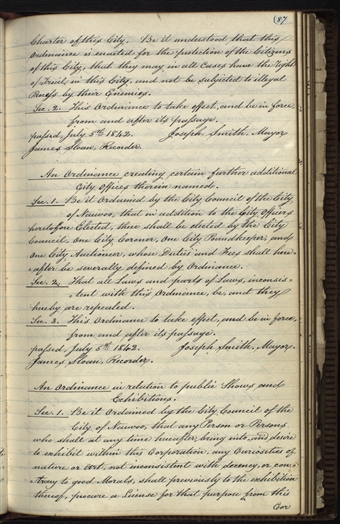 (87
Charter of this City. Be it understood that this
Ordinance is enacted for the protection of the Citizens
of this City, that they may in all Cases have the right
of Trial, in this City, and not be subjected to illegal
Process by their Enemies.
Sec. 2. This Ordinance to take effect, and be in force
from and after its passage.
passed, July 5th 1842. Joseph Smith. Mayor
James Sloan, Recorder
An Ordinance creating certain further additional
City Officers therein named.
Sec. 1. Be it Ordained by the City Council of the City
of Nauvoo, that in addition to the City Officers
heretofore Elected, there shall be elected by the City
Council, One City Coronor, One City Poundkeeper, and
One City Auctioneer, whose Duties and Fees shall here-
-after be severally defined by Ordinance.
Sec. 2. That all Laws and parts of Laws, inconsis-
-tent with this Ordinance, be and they
hereby are repealed.
Sec. 3. This Ordinance to take effect, and be in force,
from and after its passage.
passed, July 5th 1842. Joseph Smith, Mayor.
James Sloan, Recorder,
An Ordinance in relation to public Shows and
Exhibitions.
Sec. 1. Be it Ordained by the City Council of the
City of Nauvoo, that any Person or Persons
who shall at any time hereafter bring into, and desire
to exhibit within this Corporation, any Curiosities of
nature or Art, not inconsistent with decency, or con-
-trary to good Morals, shall previously to the exhibition
thereof, procure a License for that purpose from this
Cor